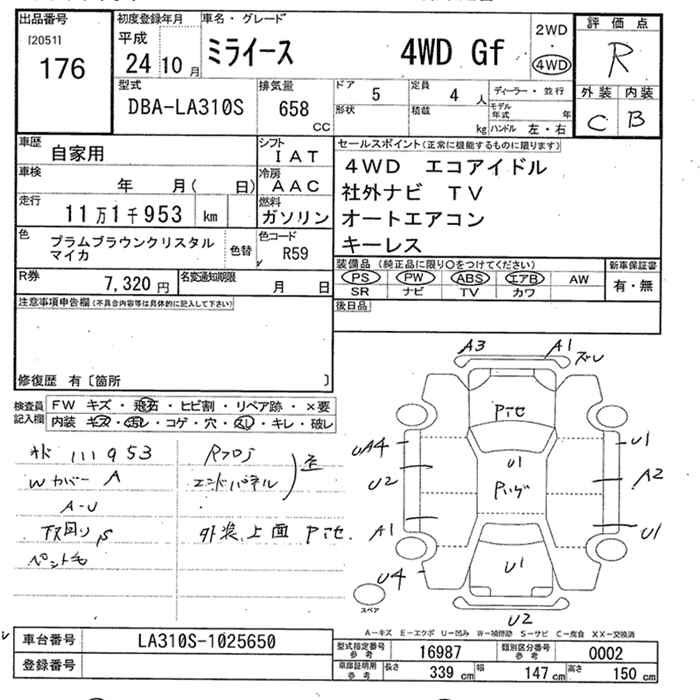 出品番号
[2051]
176
初度登録年月
平成
24 10 月
車名・グレード
ミライース 4WD Gf
2WD
・
4WD
評価点
R
外装 内装
C B
型式
DBA-LA310S
排気量
658
CC
ドア 5
定員 4 人
形状
積載 kg
ディーラー・並行
モデル年式 年
ハンドル 左・右
車歴
自家用
シフト
IAT
車検
年 月( 日)
冷房
AAC
走行
11万1千953 km
燃料
ガソリン
色
プラムブラウンクリスタル
マイカ
色替
色コード
R59
R券
7,320 円
名変通知期限
月 日
セールスポイント(正常に機能するものに限ります)
4WD エコアイドル
社外ナビ TV
オートエアコン
キーレス
装備品 (純正品に限り○をつけてください)
PS PW ABS エアB AW
SR ナビ TV カワ
新車保証書
有・無
後日品
注意事項申告欄(不具合内容等は具体的に記入して下さい)
修復歴 有〔箇所 〕
検査員
記入欄
FW キズ・飛石・ヒビ割・リペア跡・×要
内装 キズ・汚レ・コゲ・穴・スレ・キレ・破レ
111953
Wカバー A
A-U
下回りS
Rフロア
エンドパネル
外装上面 Pite.
A3
A1
ズレ
Pite
UA4
U2
A1
U4
U1
U1
A2
U1
U1
U2
スペア
A-キズ E-エクボ U-凹み W-補修跡 S-サビ C-腐食 XX-交換済
車台番号
LA310S-1025650
登録番号
型式指定番号
参考
16987
類別区分番号
参考
0002
車庫証明用
参考
長さ 339 cm
幅 147 cm
高さ 150 cm